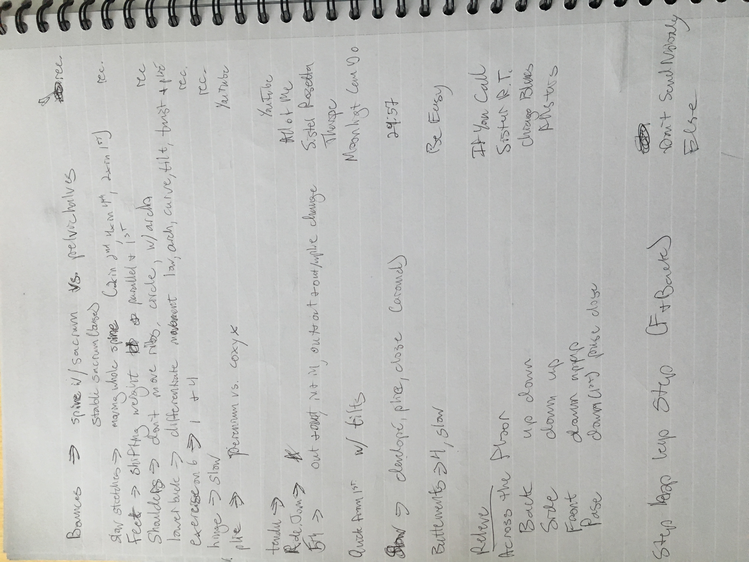 Bounces → spine w/ sacrum vs. pelvic halves rec.
stable sacrum (base)
slow stretches → moving whole spine (2x in 2nd, 4x in 1st, 2x in 1st) rec.
Feet → shifting weight parallel + 1st rec
Shoulders → don't move ribs, circle, w/ arch rec
lower back → differentiate movement low, arch, curve, tilt, twist + plié
exercise on 6 → 1 + 4 rec.
hinge → slow rec.
plie → perenium vs. coxyx YouTube
tendu → YouTube
Rde Jam → All of Me
5th → out + in + in, out out + out/plie change Sister Rosetta
Tharpe
Quick from 1st w/ tilts Moonlight Can Do
Slow → develope, plie, close (around) 29:57
Buttements → 4, slow Be Easy
Releve If You Call
Across the Floor Sister R.T.
Back up down Chicago Blues
Side down up Allstars
Front down up up
Pase down (1st) pause close
Step hop hop Step (F + Back) Don't Send Nobody
Else